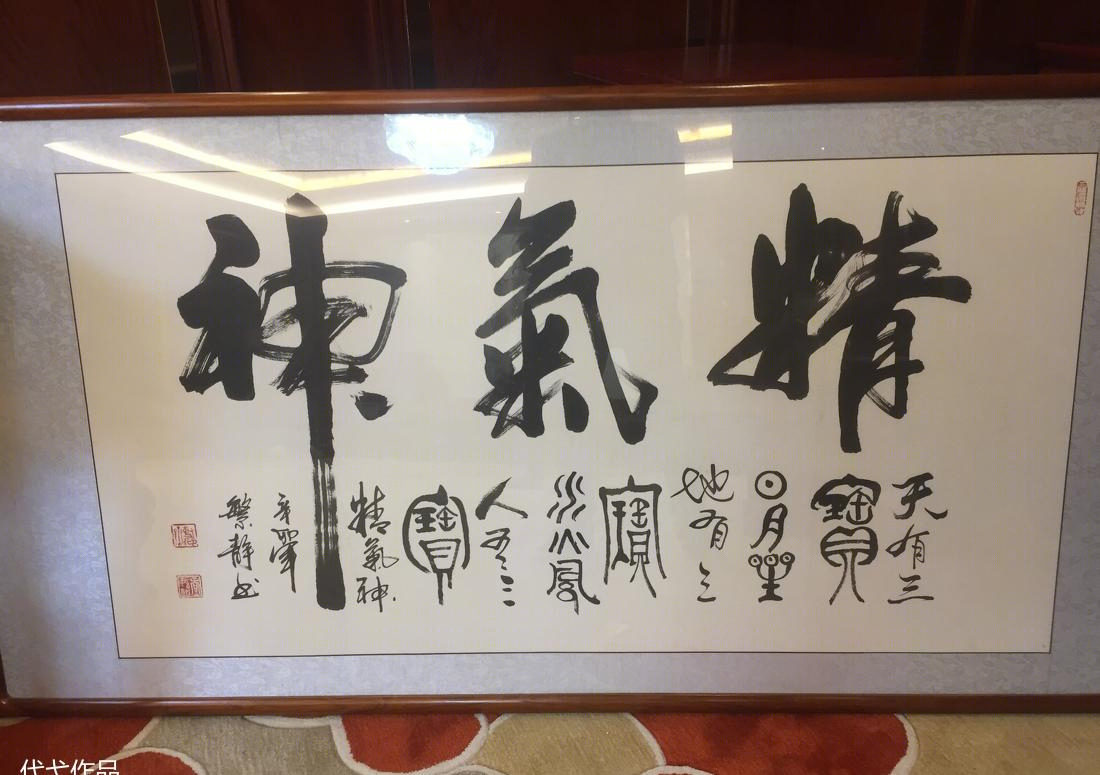 精氣神
天有三
寶
日月星
地有三
寶
水火風
人有三
寶
精氣神
繁靜书
代弋作品